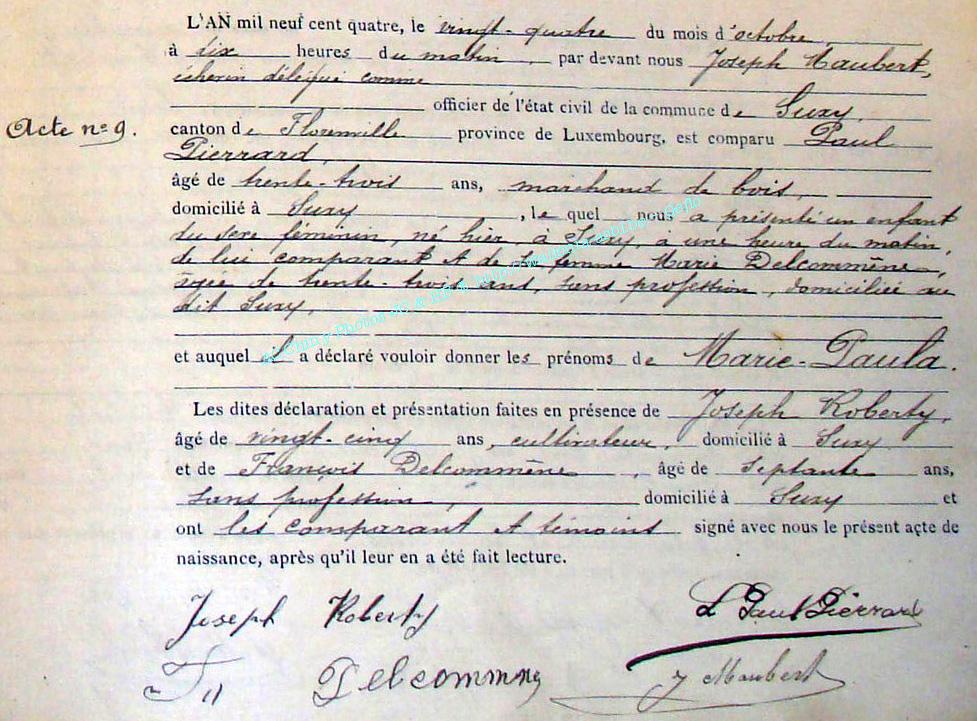 L'AN mil neuf cent quatre, le vingt-quatre du mois d'octobre,
à dix heures du matin, par devant nous Joseph Maubert,
échevin délégué comme
officier de l'état civil de la commune de Suxy,
Acte nº 9.
canton de Florenville province de Luxembourg, est comparu Paul
Pierrard,
âgé de trente-trois ans, marchand de bois,
domicilié à Suxy, le quel nous a présenté un enfant
du sexe féminin, né hier, à Suxy, à une heure du matin,
de lui comparant et de sa femme Marie Delcommène,
âgée de trente-trois ans, sans profession, domiciliée au
dit Suxy,
et auquel il a déclaré vouloir donner les prénoms de Marie-Paula.
Les dites déclaration et présentation faites en présence de Joseph Roberty,
âgé de vingt-cinq ans, cultivateur, domicilié à Suxy
et de François Delcommène, âgé de septante ans,
sans profession, domicilié à Suxy et
ont les comparant et témoins signé avec nous le présent acte de
naissance, après qu'il leur en a été fait lecture.
Joseph Roberty Paul Pierrard
Delcommène J Maubert